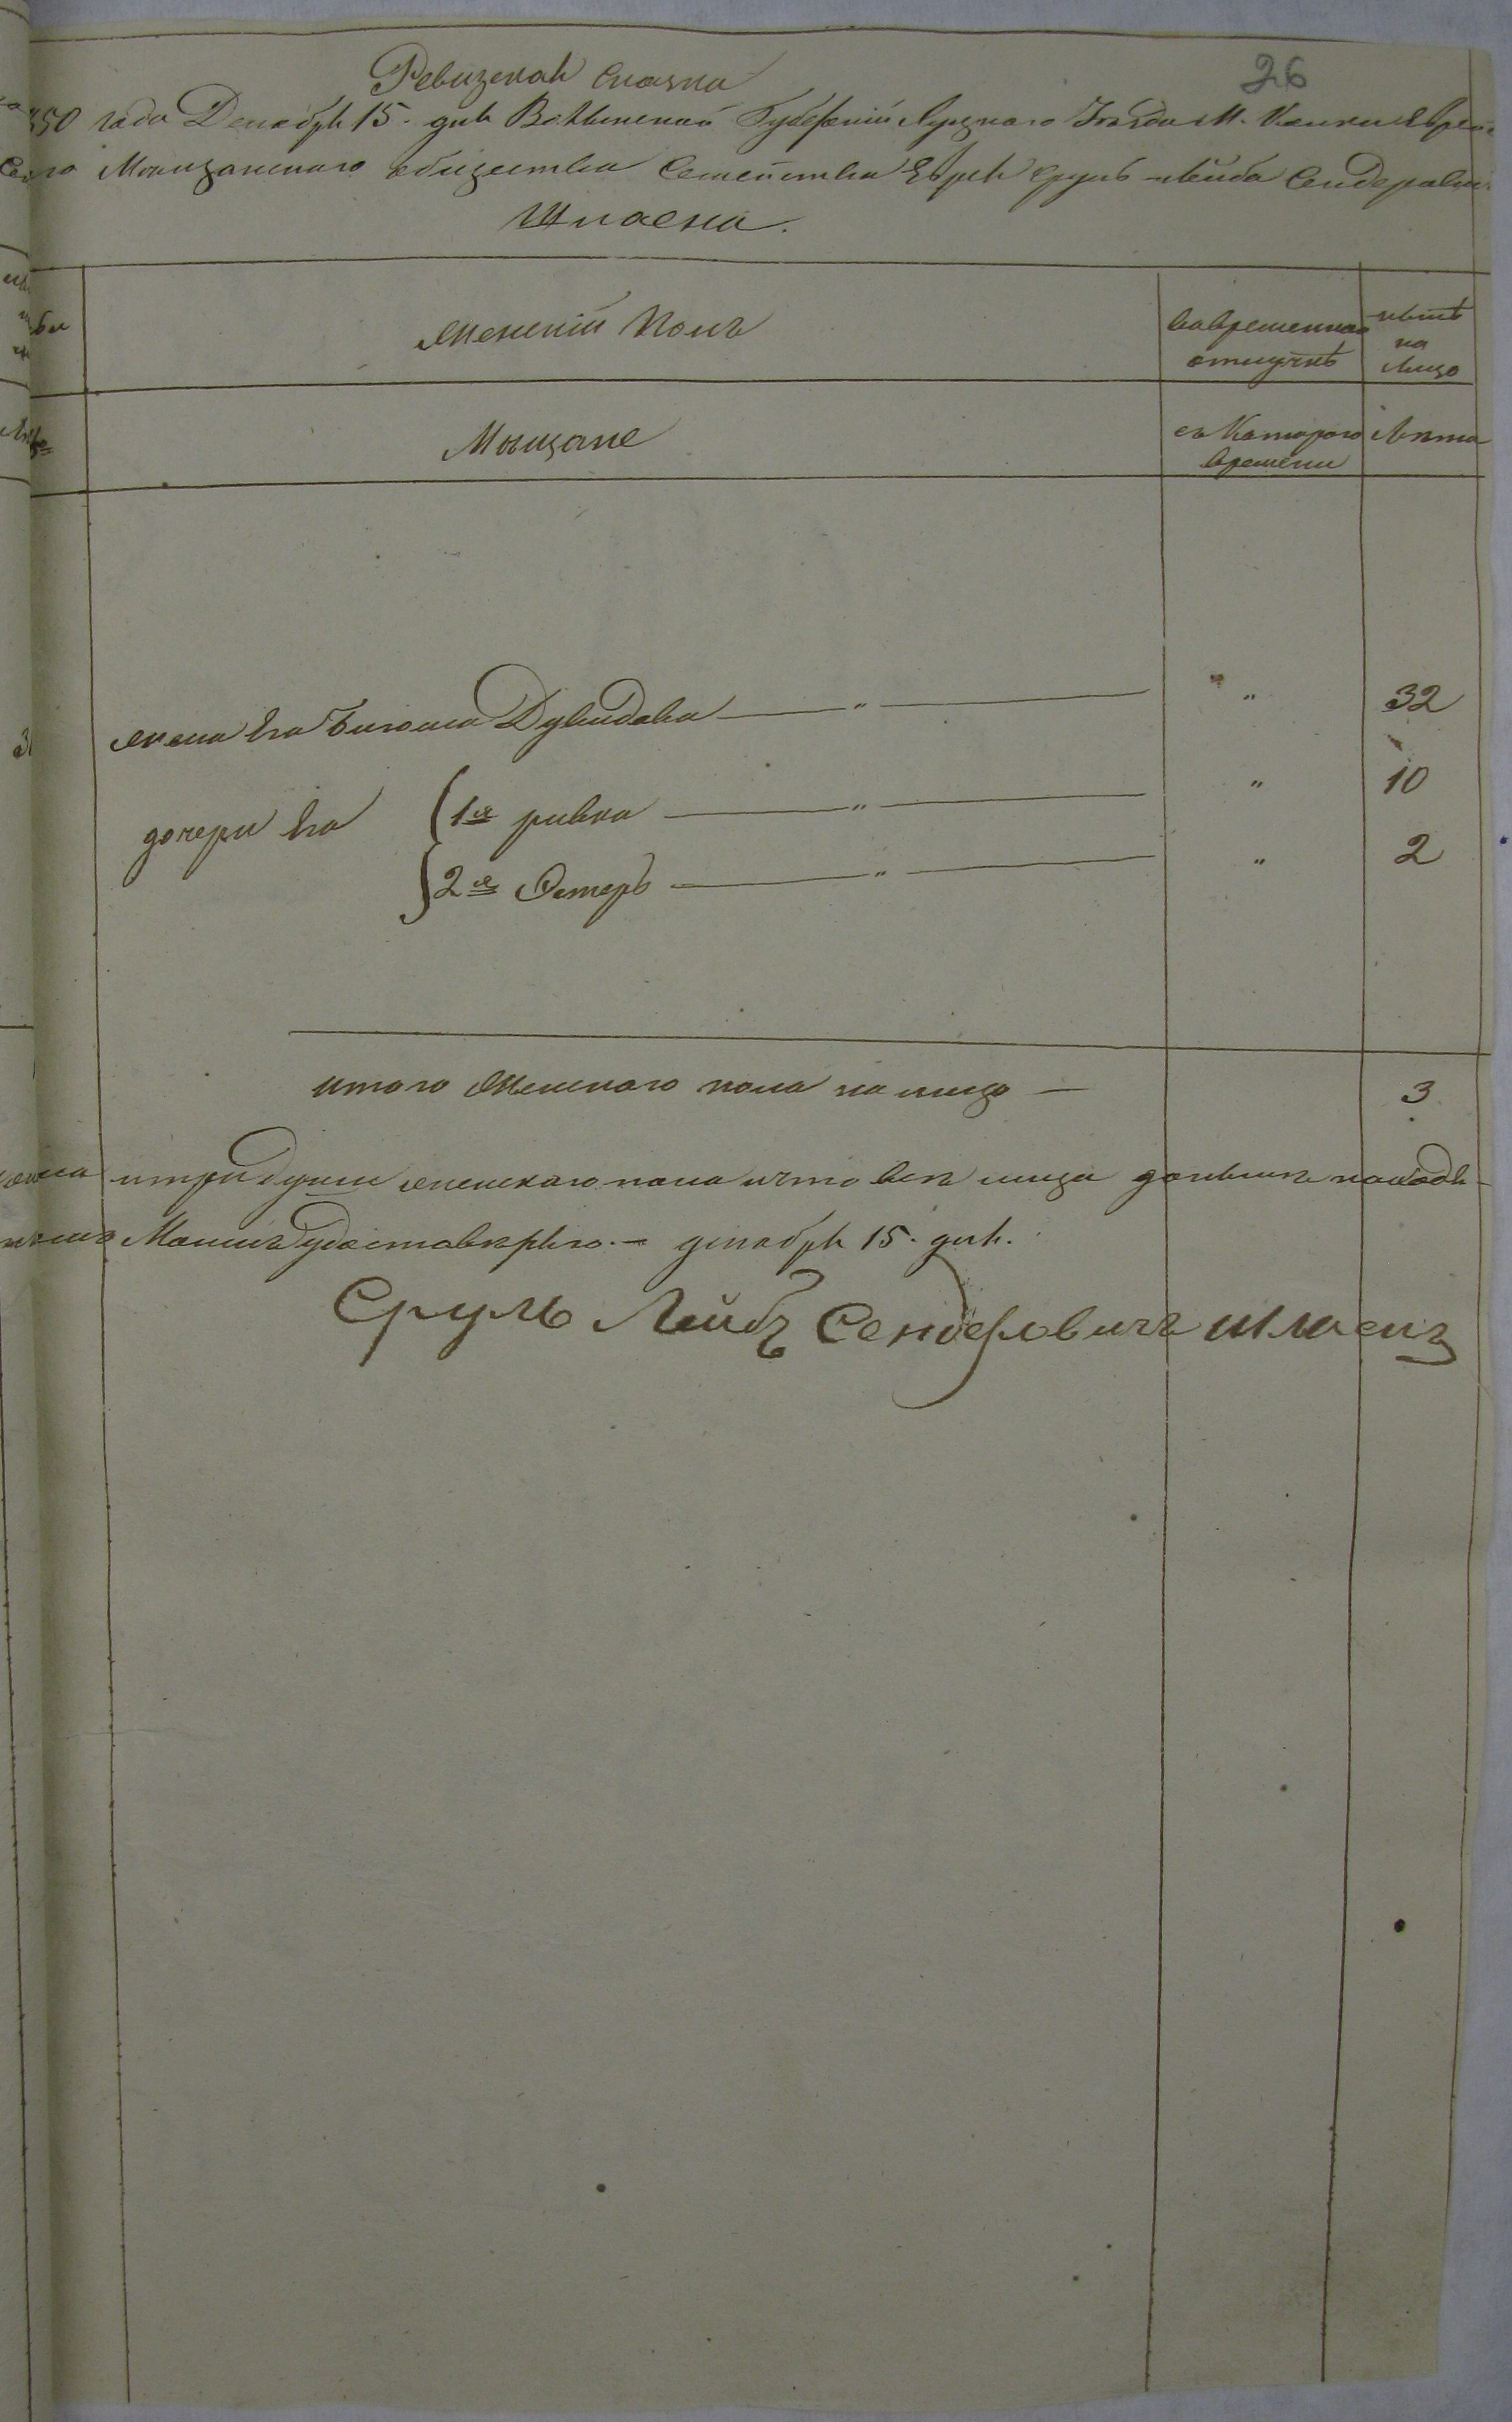 26
Ревизская Сказка
850 года Декабря 15. дня Волынской Губерніи Луцкаго Уѣзда М. Еврей
скаго Мѣщанскаго общества Семейства Еврея Сруль Лейба Сендерович
Шпаена.
женскій полъ
вовременной отлучкѣ
нынѣ на лицо
Мѣщане
съ Котораго времени
Лѣта
жена его Дувидова — " — " 32
дочери его
1я ривка — " — " 10
2я Эстеръ — " — " 2
итого женскаго пола на лицо — 3
итри души женскаго пола ичто всѣ лица
Моимъ удостовѣряю. — декабря 15. дня.
Сруль Лейбъ Сендеровичъ шпаенъ